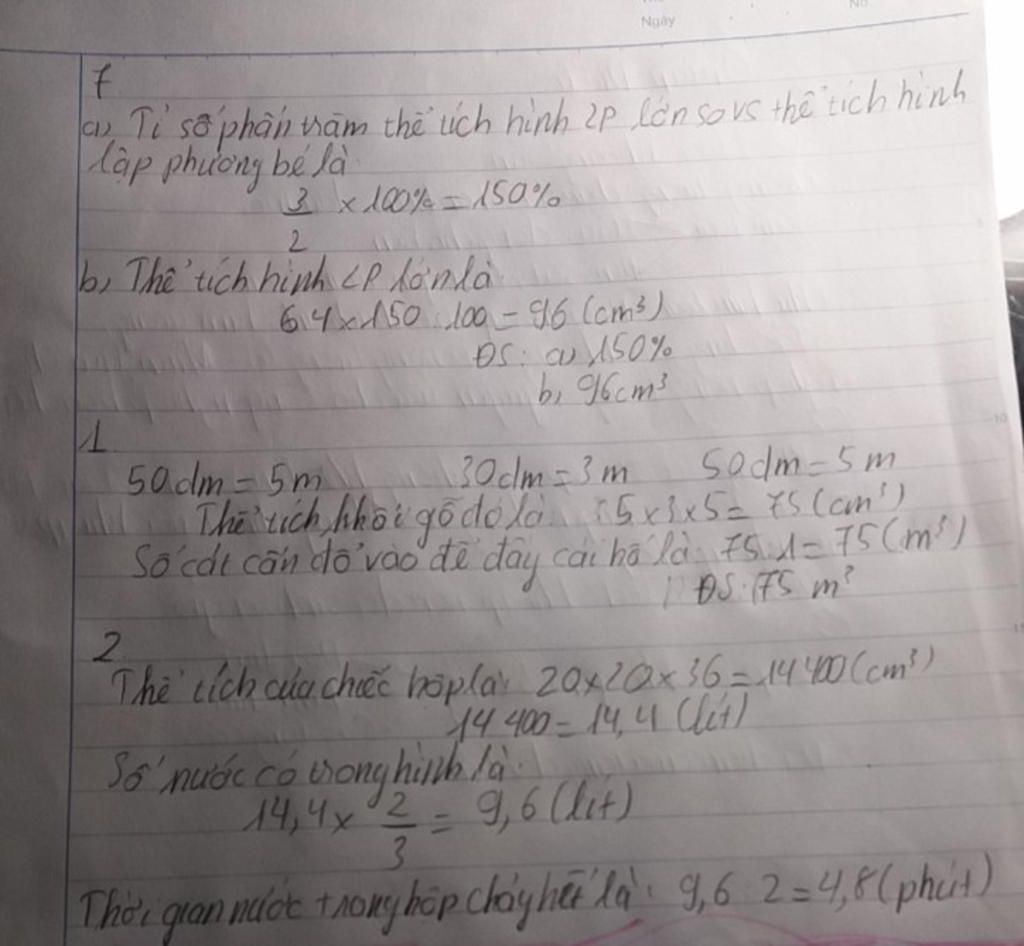 Ngày
No
f
a, Tỉ số phần trăm thể tích hình LP lớn so vs thể tích hình
lập phương bé là
3/2 x 100% = 150%
b, Thể tích hình LP lớn là
64 x 150 : 100 = 96 (cm³)
ĐS: a, 150%
b, 96cm³
1
50dm = 5m 30dm = 3m 50dm = 5m
Thể tích khối gỗ đó là: 5 x 3 x 5 = 75 (cm³)
Số cát cần đổ vào để đầy cái hố là: 75 : 1 = 75 (m³)
ĐS: 75 m³
2
Thể tích của chiếc hộp là: 20 x 20 x 36 = 14 400 (cm³)
14 400 = 14,4 (lít)
Số nước có trong hình là:
14,4 x 2/3 = 9,6 (lít)
Thời gian nước trong hộp chảy hết là: 9,6 : 2 = 4,8 (phút)